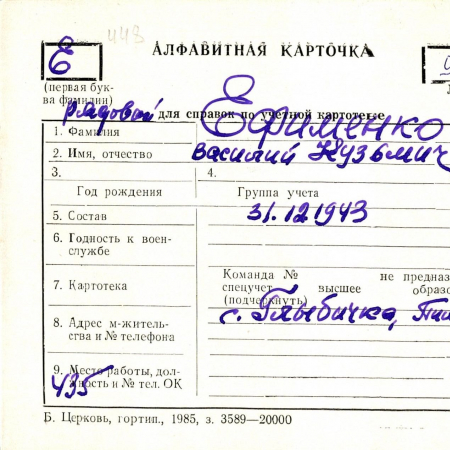 443
АЛФАВИТНАЯ КАРТОЧКА
Е
(первая бук-
ва фамилии)
рядовой для справок по учетной картотеке
1. Фамилия Ефименко
2. Имя, отчество Василий Кузьмич
3. 4.
Год рождения Группа учета
5. Состав 31.12.1943
6. Годность к воен-
службе
Команда № не предназ
7. Картотека спецучет высшее образо
(подчеркнуть)
8. Адрес м-житель- с. Глыбичка,
ства и № телефона
9. Место работы, дол-
жность и № тел. ОК
435
Б. Церковь, гортип., 1985, з. 3589—20000